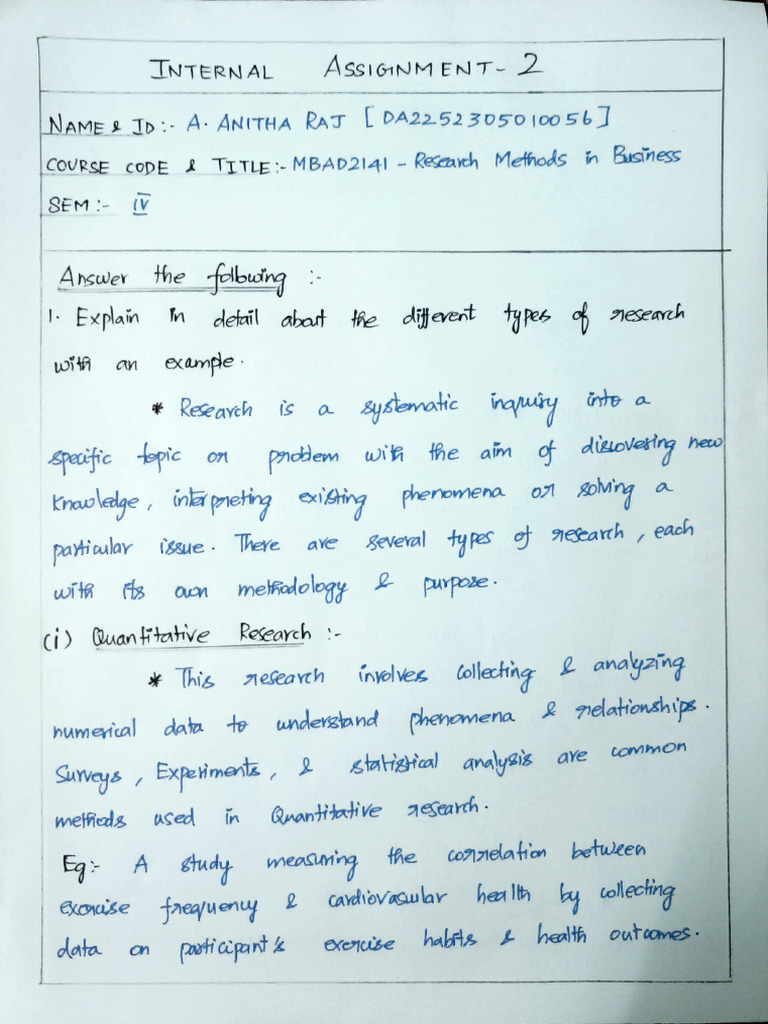 INTERNAL ASSIGNMENT - 2
NAME & ID :- A. ANITHA RAJ [DA2252305010056]
COURSE CODE & TITLE :- MBAD2141 - Research Methods in Business
SEM :- IV
Answer the following :-
1. Explain in detail about the different types of research
with an example.
* Research is a systematic inquiry into a
specific topic or problem with the aim of discovering new
knowledge, interpreting existing phenomena or solving a
particular issue. There are several types of research, each
with its own methodology & purpose.
(i) Quantitative Research :-
* This research involves collecting & analyzing
numerical data to understand phenomena & relationships.
Surveys, Experiments, & statistical analysis are common
methods used in Quantitative research.
Eg :- A study measuring the correlation between
exercise frequency & cardiovascular health by collecting
data on participant's exercise habits & health outcomes.